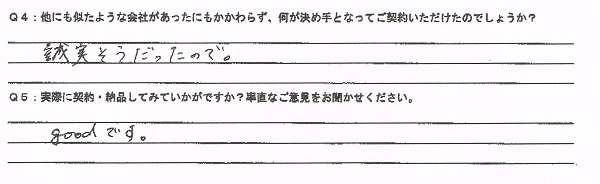 Q4：他にも似たような会社があったにもかかわらず、何が決め手となってご契約いただけたのでしょうか？
誠実そうだったので。
Q5：実際に契約・納品してみていかがですか？率直なご意見をお聞かせください。
goodです。